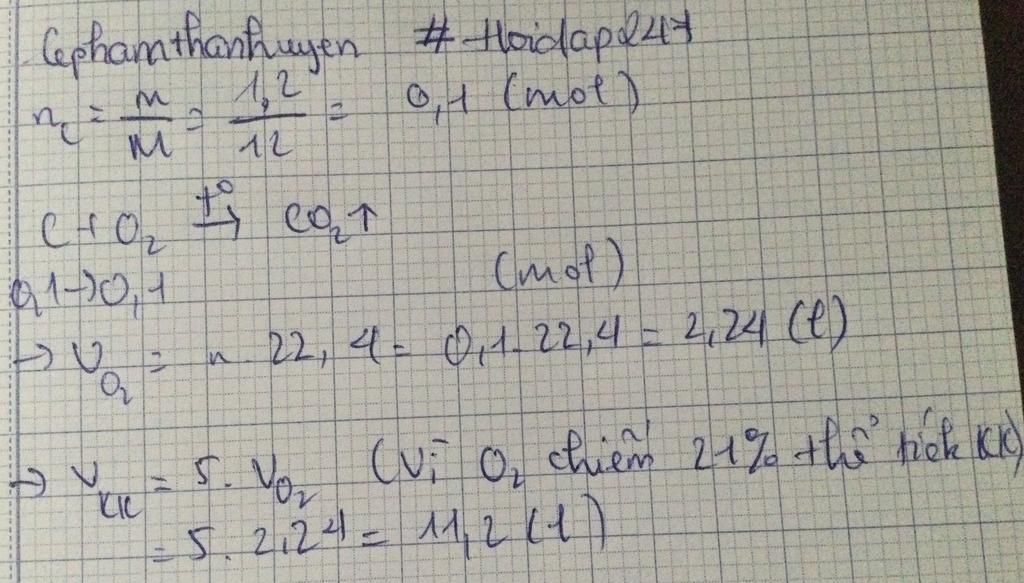 Cephamthanhuyen #Hoidap247
n_C = m/M = 1,2/12 = 0,1 (mol)
C + O₂ t°→ CO₂↑
0,1→0,1 (mol)
→ V_O₂ = n. 22,4 = 0,1. 22,4 = 2,24 (l)
→ V_KK = 5. V_O₂ (Vì O₂ chiếm 21% thể tích KK)
= 5. 2,24 = 11,2 (l)